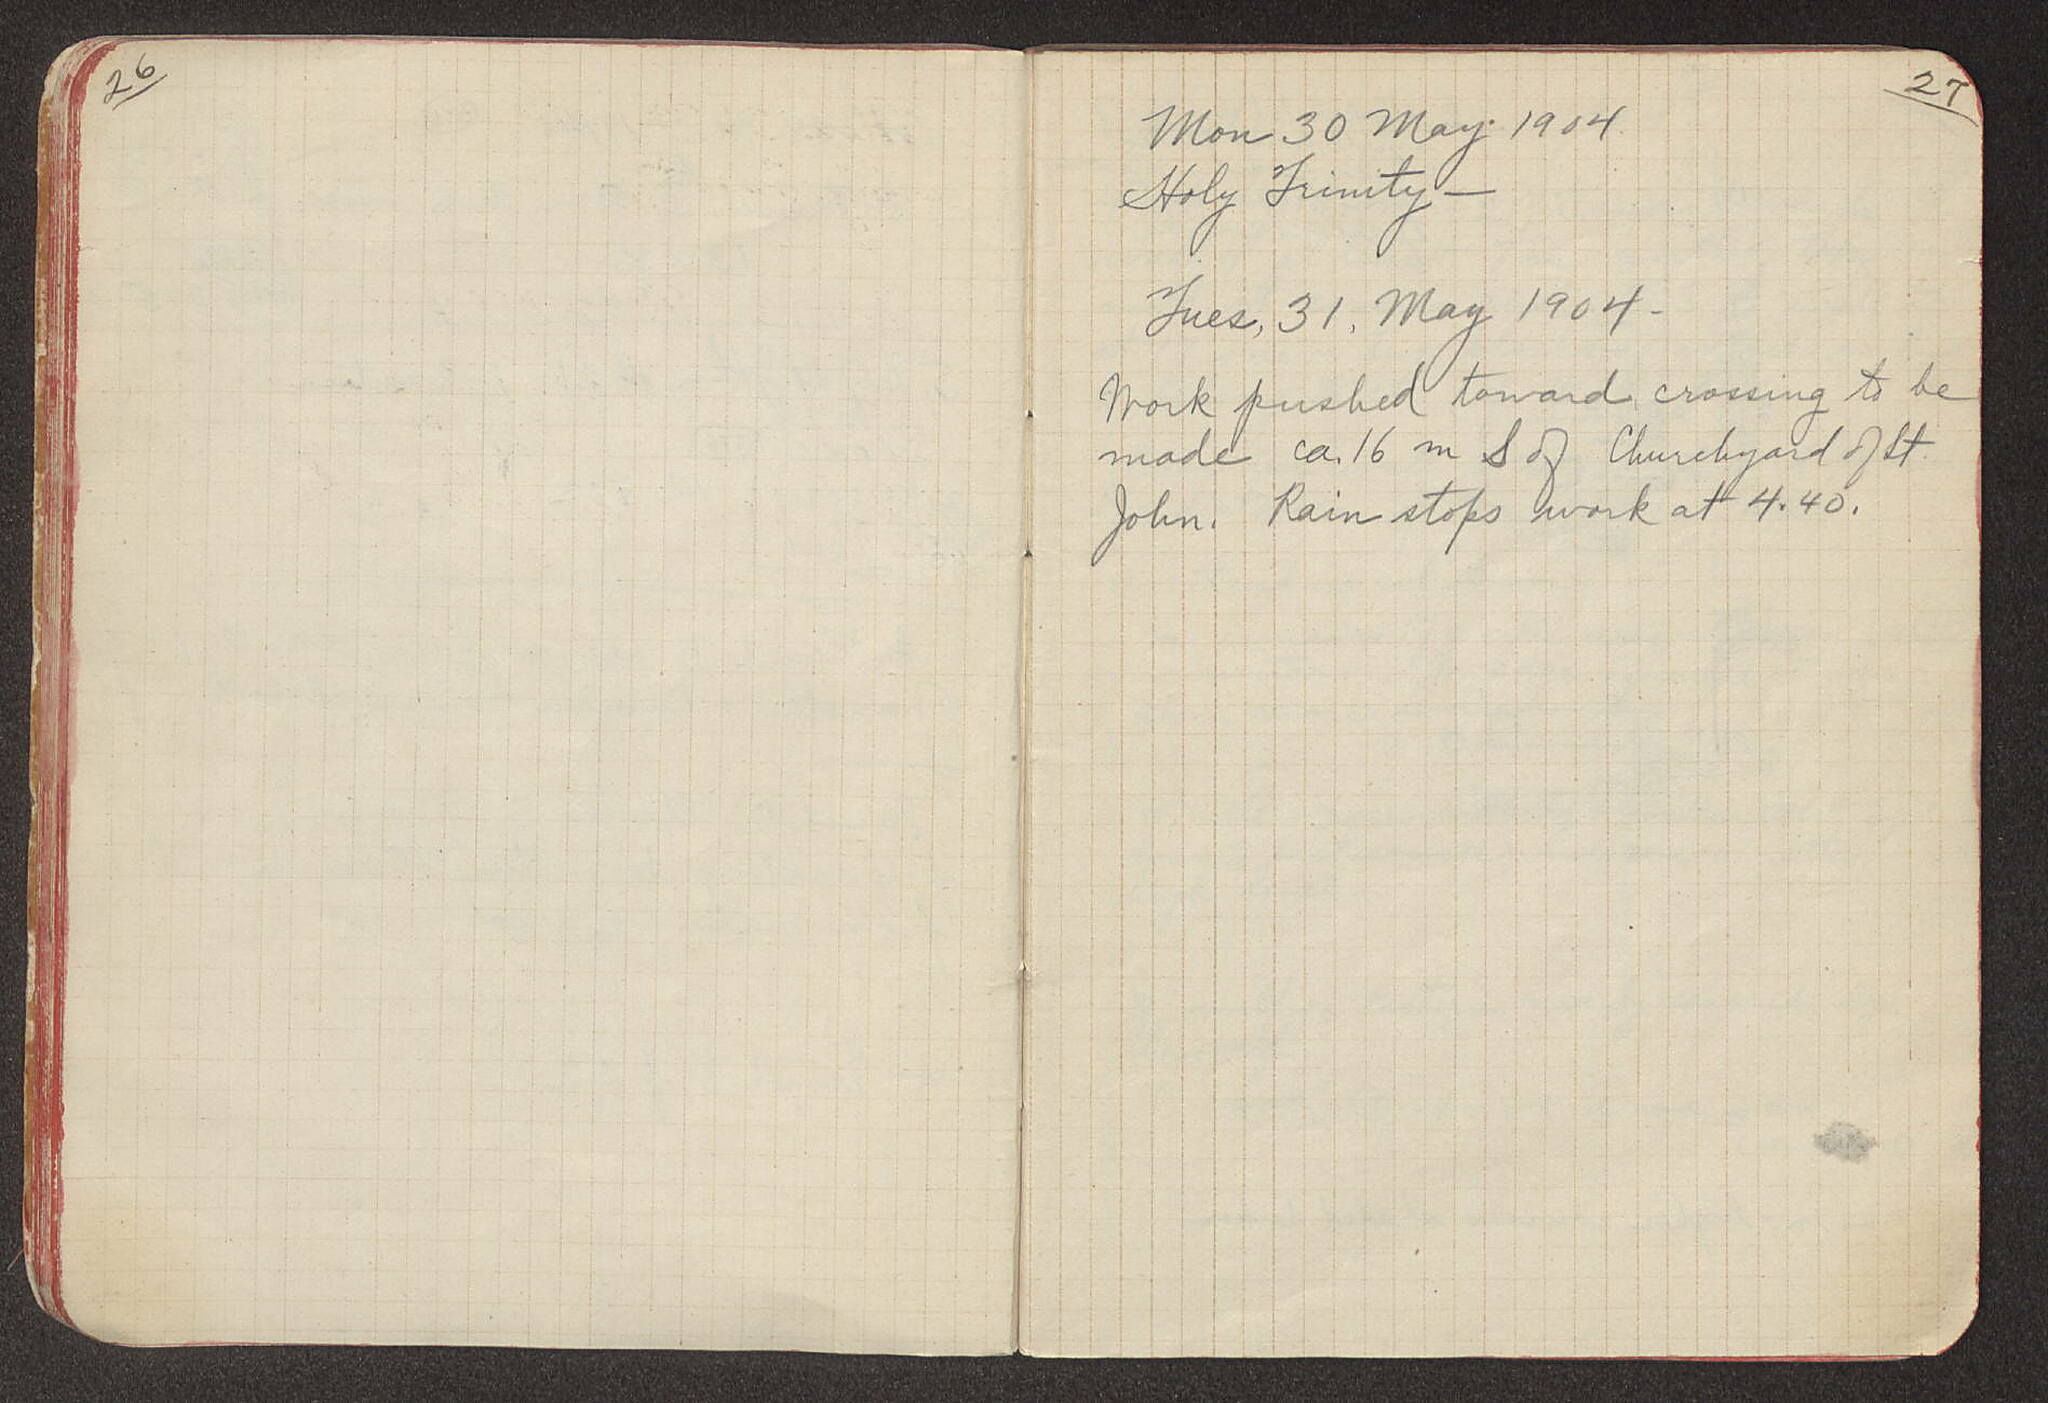 26
27
Mon 30 May. 1904
Holy Trinity —
Tues, 31, May 1904 -
Work pushed toward crossing to be
made ca. 16 m S of Churchyard of St.
John. Rain stops work at 4.40.